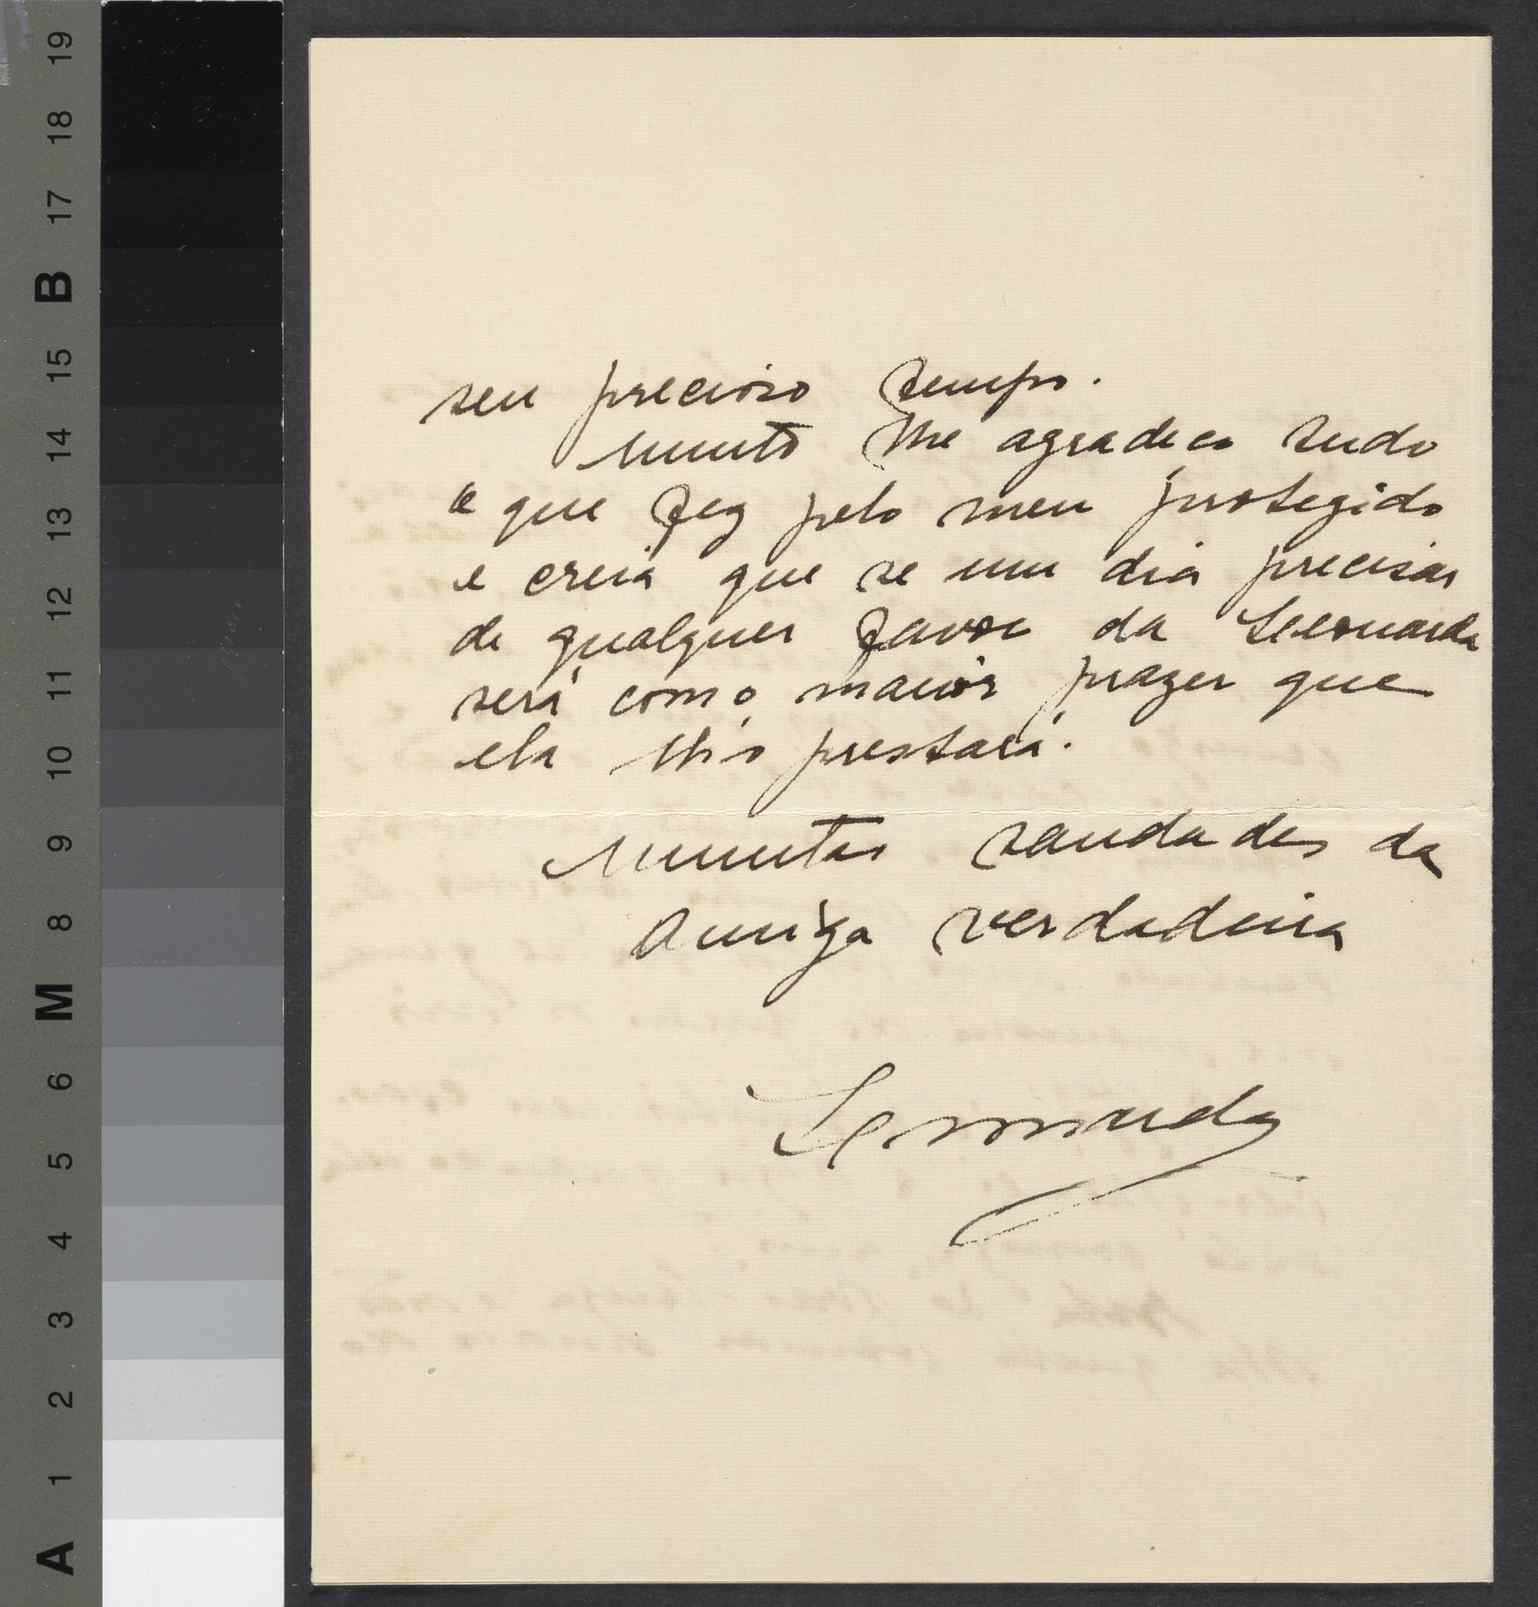 19
18
17
B
15
14
13
12
11
10
9
8
M
6
5
4
3
2
1
A
seu precioso tempo.
Muito lhe agradeço tudo
o que fez pelo meu protegido
e creia que se um dia precisar
de qualquer favor da Leonarda
será com o maior prazer que
ela lh'o prestará.
Muitas saudades da
Amiga verdadeira
Leonarda